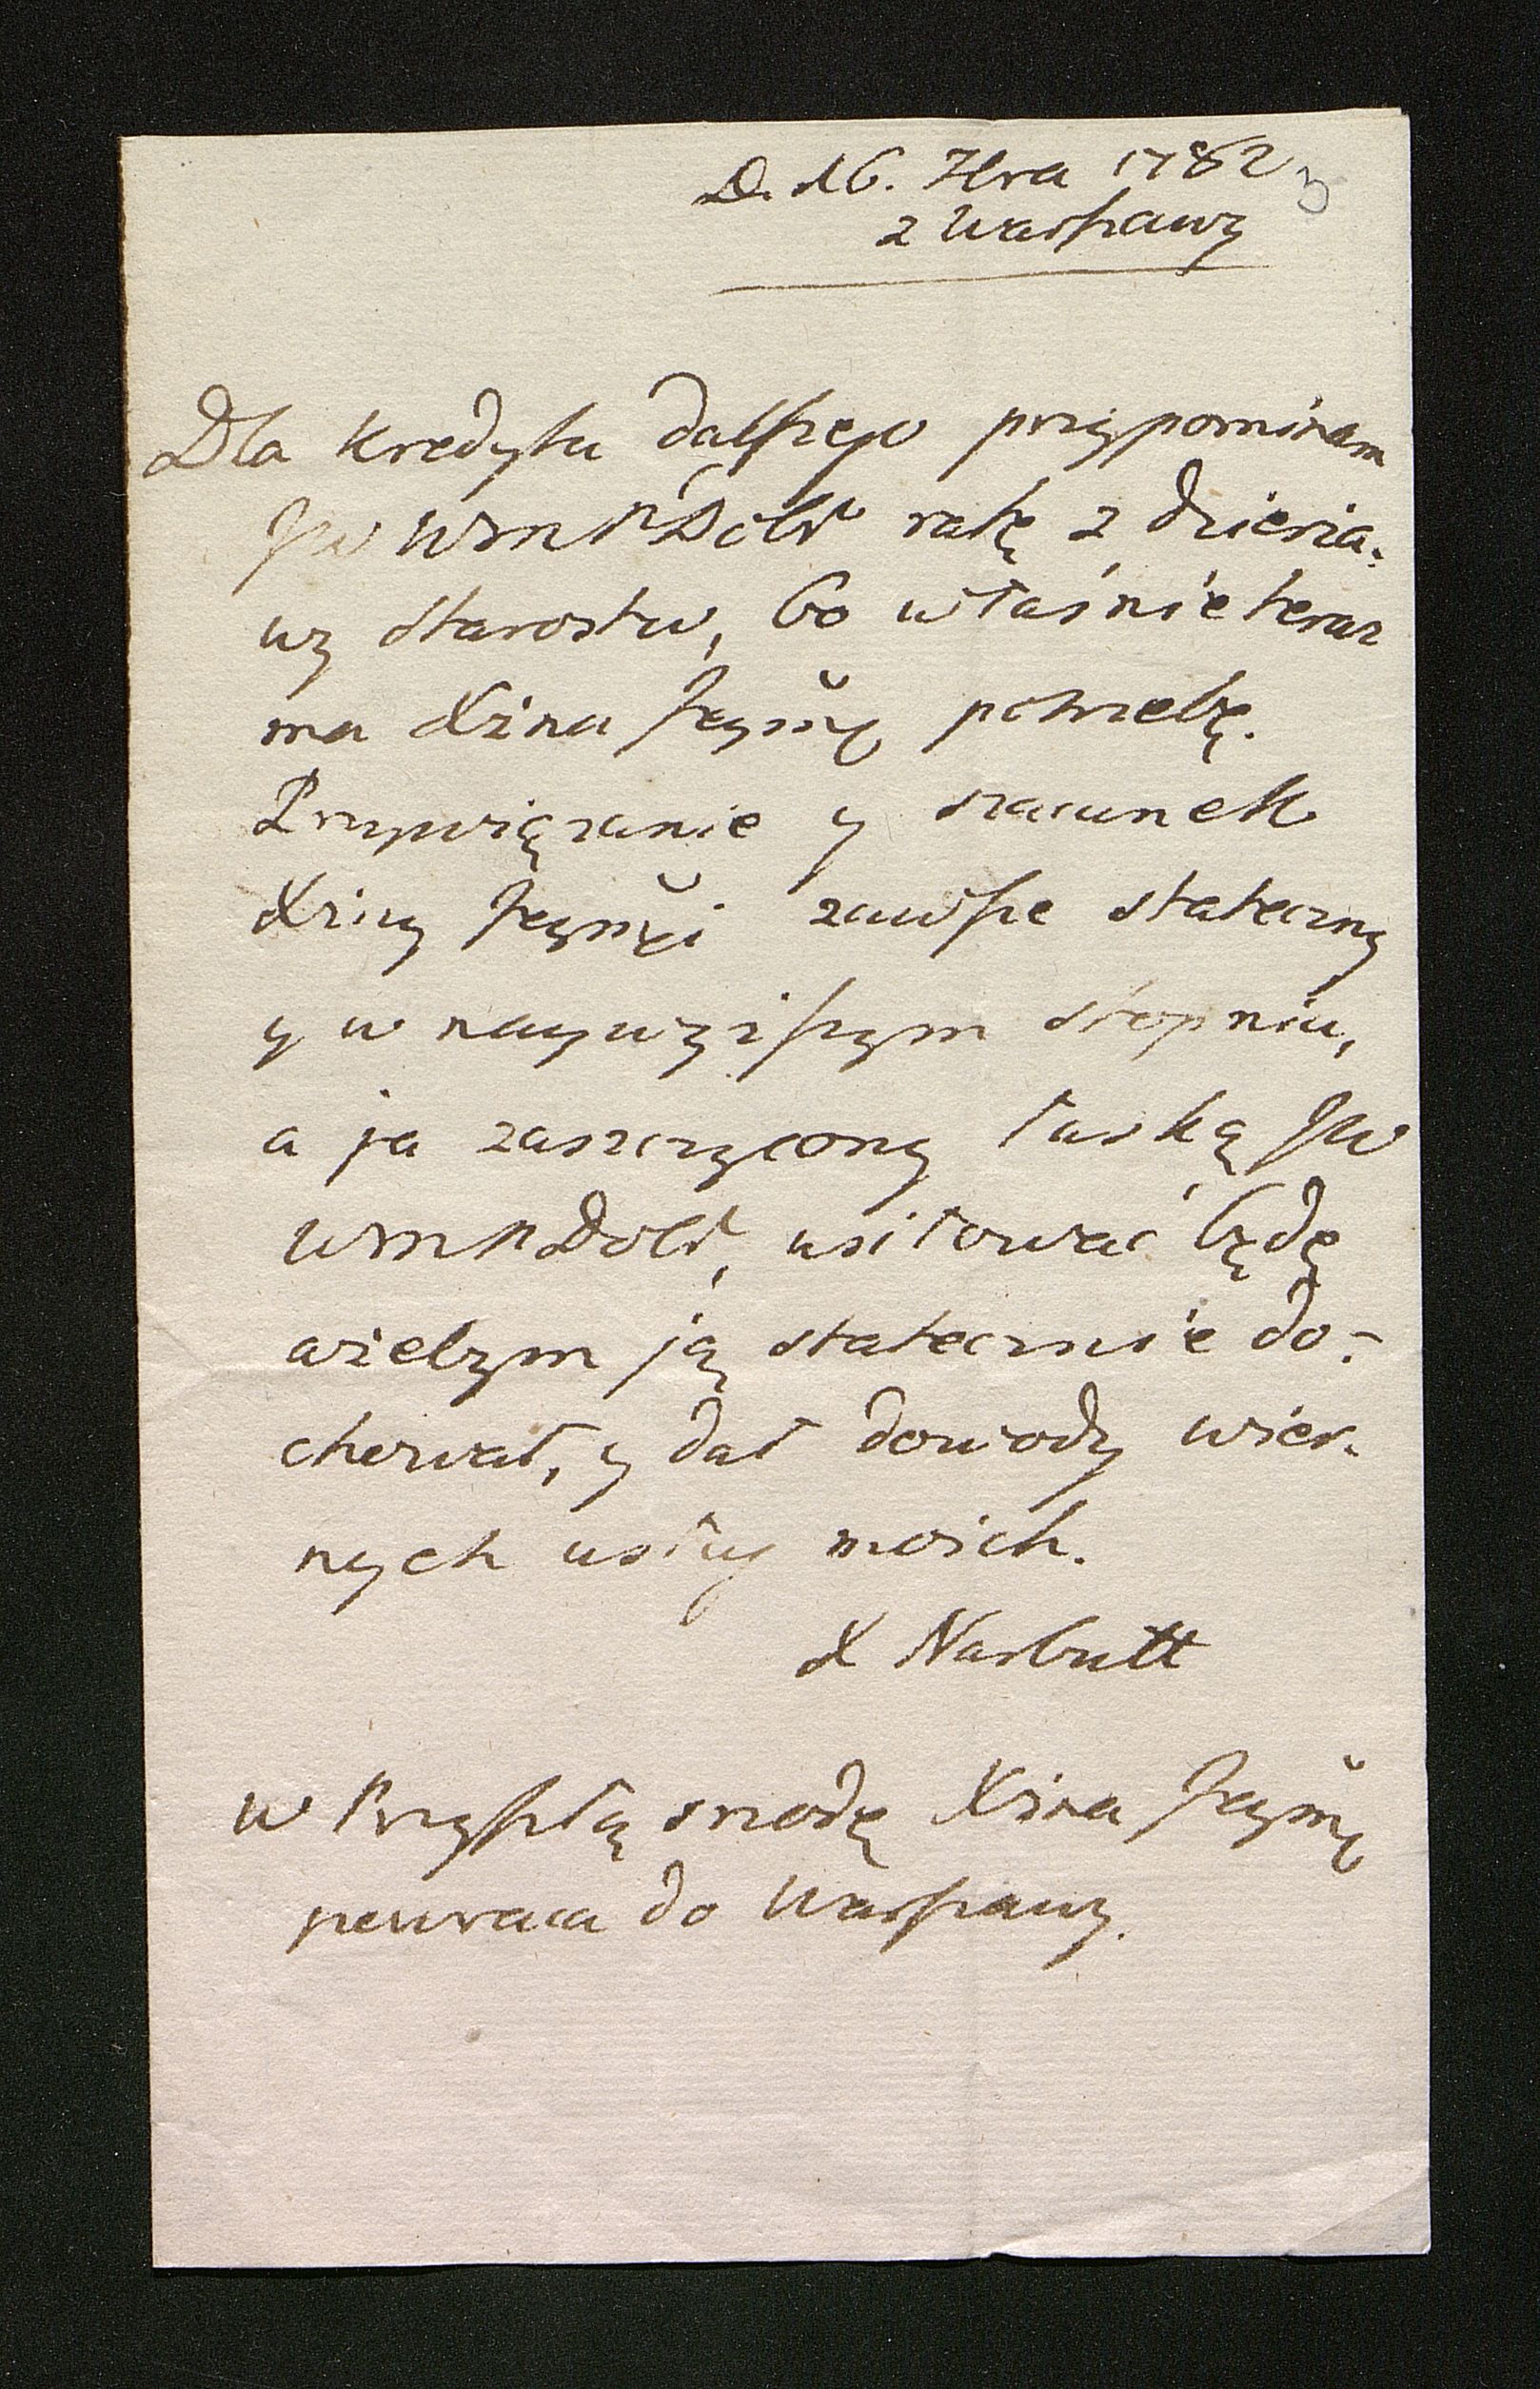 D. 16. 7bra 1782
z Warszawy
Dla kredytu dalszego przypominam
JW WMPDobr ratę z dzierża-
wy starostw, bo właśnie teraz
ma Xżna Jeymć potrzebę.
Przywiązanie y szacunek
Xżny Jeymći zawsze stateczny
y w naywyższym stopniu,
a ja zaszczycony łaską JW
WMPDobr, usiłować będę
ażebym ją statecznie do-
chował, y dał dowody wier-
nych usług moich.
X Narbutt
w Przyszłą srzodę Xżna Jeymć
powraca do Warszawy.